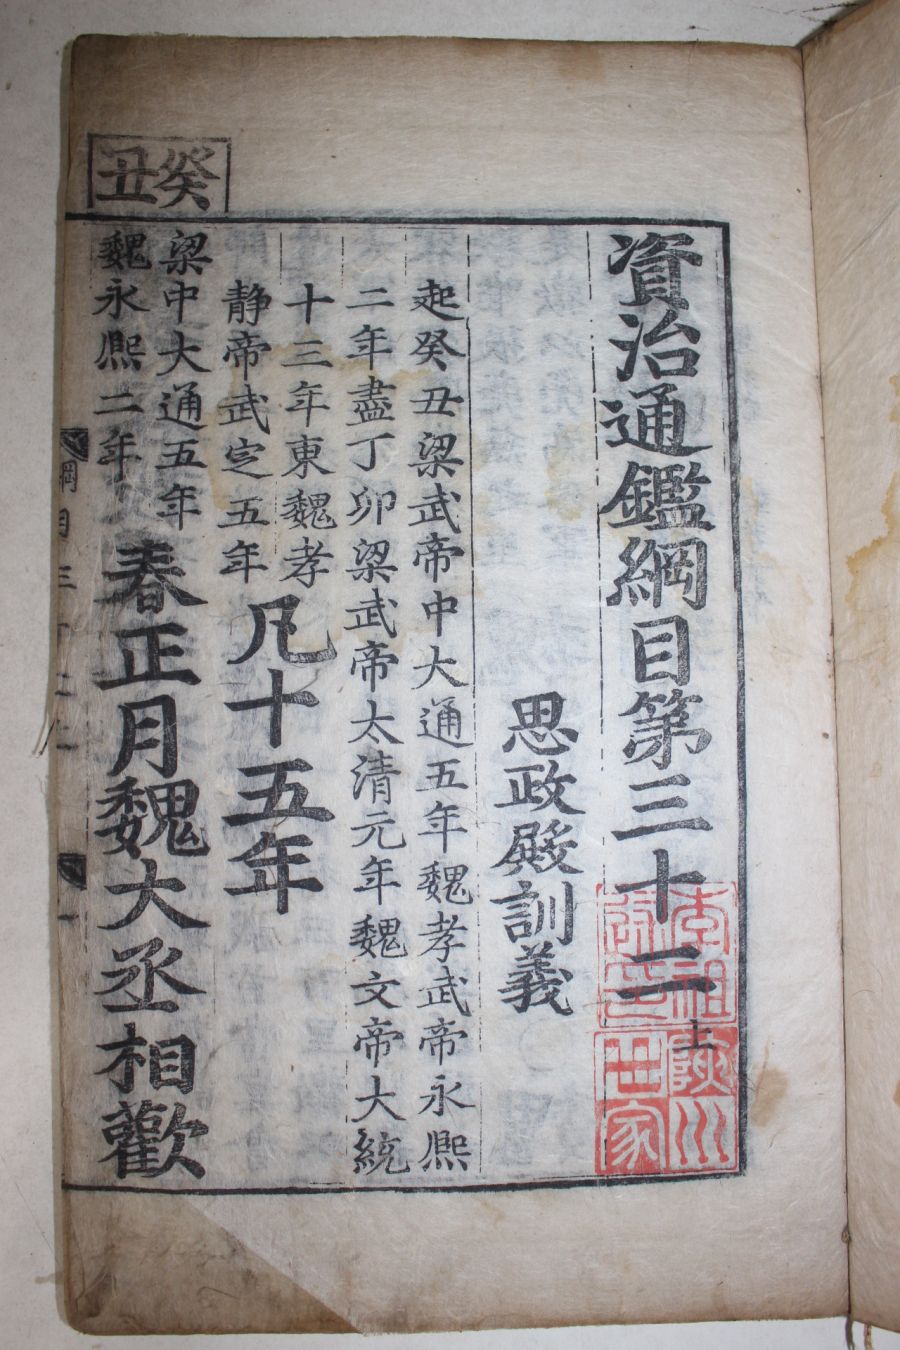 資治通鑑綱目第三十二上
思政殿訓義
起癸丑梁武帝中大通五年魏孝武帝永熙
二年盡丁卯梁武帝太清元年魏文帝大統
十三年東魏孝
静帝武定五年
凡十五年
癸丑
梁中大通五年
魏永熙二年
春正月魏大丞相歡
綱目三十二上
一
陜川世家